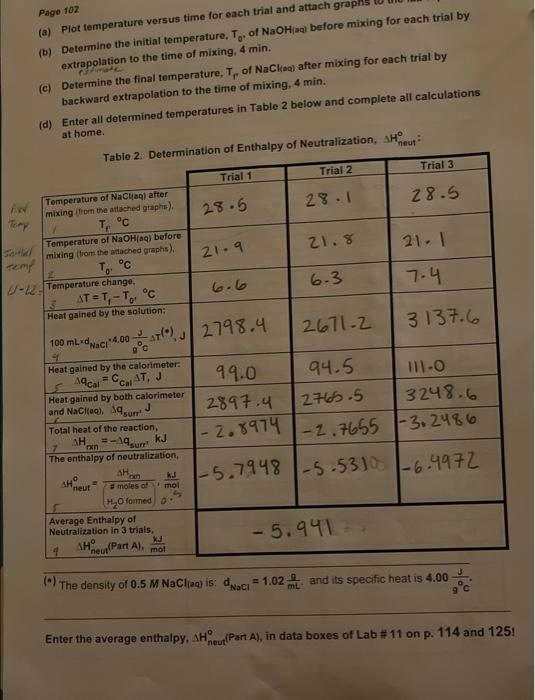 Page 102
(a) Plot temperature versus time for each trial and attach graphs to
(b) Determine the initial temperature, To, of NaOH(aq) before mixing for each trial by
extrapolation to the time of mixing, 4 min.
estimate
(c) Determine the final temperature, Tf, of NaCl(aq) after mixing for each trial by
backward extrapolation to the time of mixing, 4 min.
(d) Enter all determined temperatures in Table 2 below and complete all calculations
at home.
Table 2. Determination of Enthalpy of Neutralization, ΔH°neut:
Trial 1 Trial 2 Trial 3
Final Temp
Temperature of NaCl(aq) after
mixing (from the attached graphs),
1 Tf, °C
28.5 28.1 28.5
Initial temp
Temperature of NaOH(aq) before
mixing (from the attached graphs),
2 To, °C
21.9 21.8 21.1
Temperature change,
3 ΔT = Tf – To, °C
6.6 6.3 7.4
Heat gained by the solution:
100 mL×dNaCl×4.00 J/g°C ΔT(*), J
4
2798.4 2671.2 3137.6
Heat gained by the calorimeter:
5 ΔqCal = CCal ΔT, J
99.0 94.5 111.0
Heat gained by both calorimeter
and NaCl(aq), Δqsurr, J
2897.4 2765.5 3248.6
Total heat of the reaction,
7 ΔHrxn = –Δqsurr, kJ
-2.8974 -2.7655 -3.2486
The enthalpy of neutralization,
ΔH°neut = ΔHrxn / (# moles of H2O formed), kJ/mol
0.5
-5.7948 -5.5310 -6.4972
Average Enthalpy of
Neutralization in 3 trials,
9 ΔH°neut(Part A), kJ/mol
-5.941
(*) The density of 0.5 M NaCl(aq) is: dNaCl = 1.02 g/mL, and its specific heat is 4.00 J/g°C.
Enter the average enthalpy, ΔH°neut(Part A), in data boxes of Lab # 11 on p. 114 and 125!